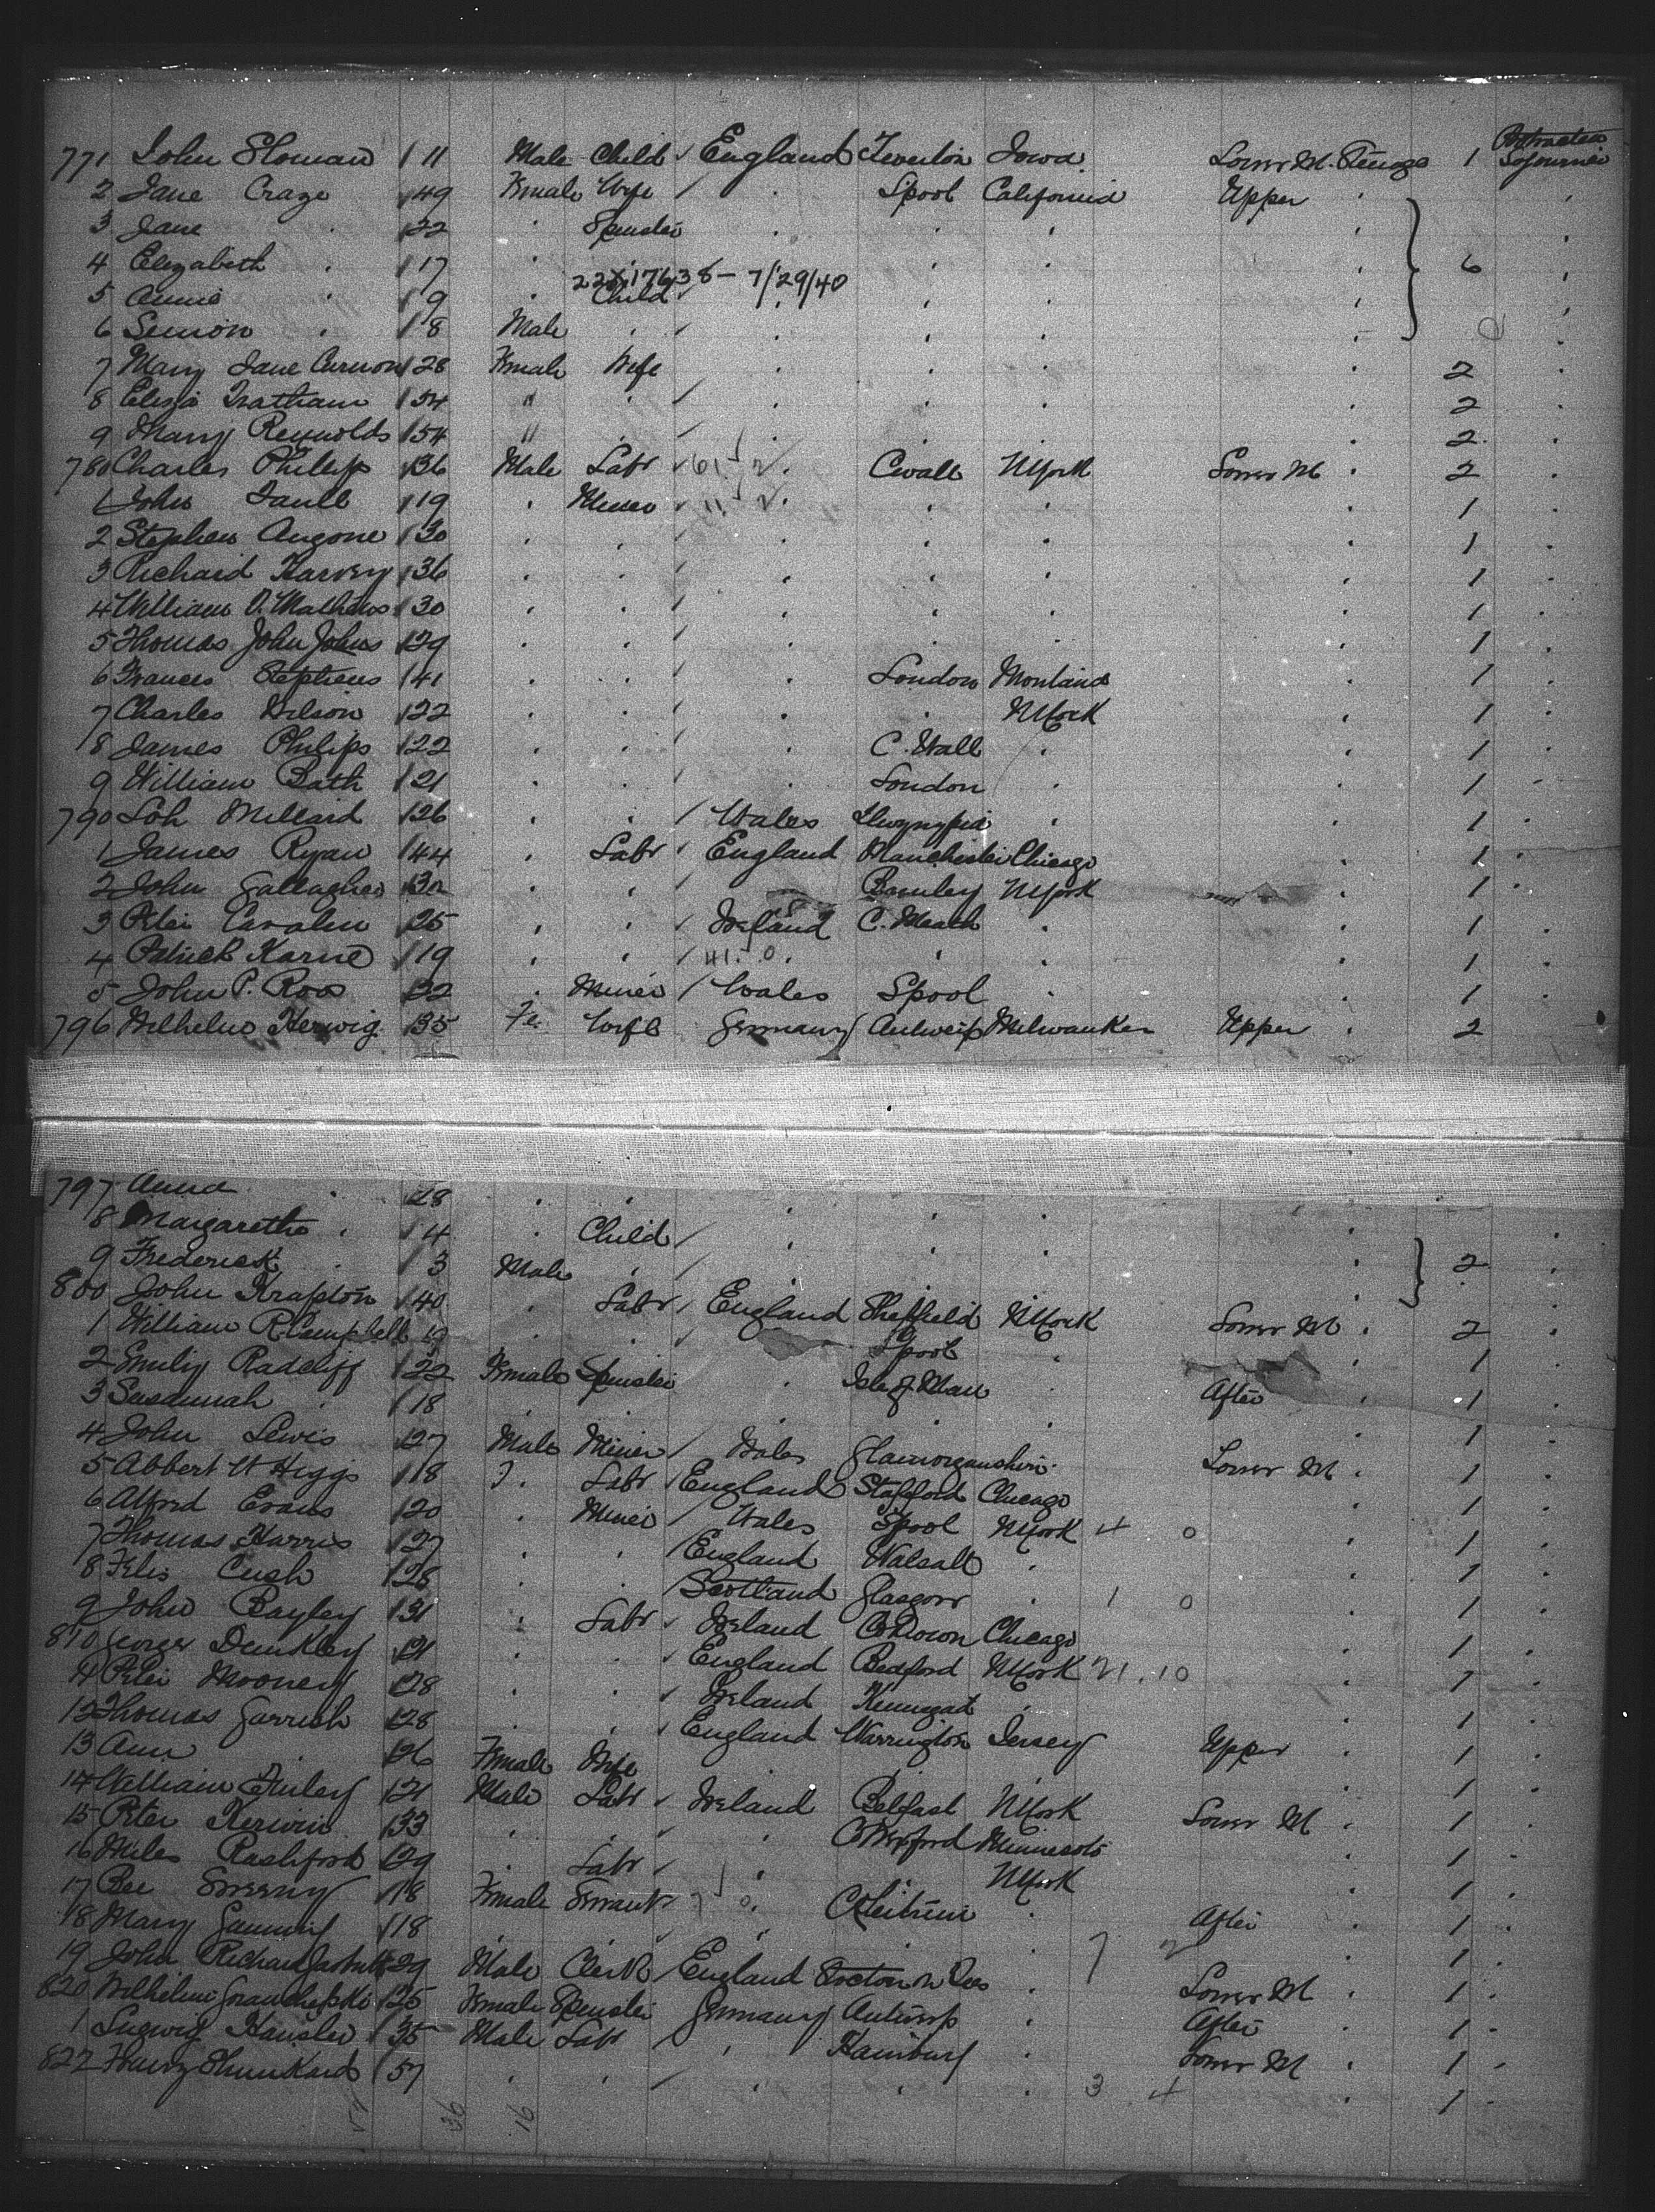 771 John Sloman 11 Male Child England Teverton Iowa Lower M. Steerage 1 Protracted Sojourner
2 Jane Craze 49 Female Wife " Lpool California Upper "
3 Jane " 22 " Spinster " " "
4 Elizabeth " 17 " " " " " 6
22X17638 – 7/29/40
5 Annie " 9 " Child " " "
6 Simon " 8 Male " " " "
7 Mary Jane Curnow 28 Female Wife " " " 2
8 Eliza Tratham 34 " " " " " 2
9 Mary Reynolds 54 " " " " " 2
780 Charles Philip 36 Male Labr " Cwall NYork Lower M " 2
1 John Jaull 19 " Miner " " " 1
2 Stephen Angone 30 " " " " " 1
3 Richard Harvey 36 " " " " " 1
4 William O. Mathews 30 " " " " " 1
5 Thomas John Johns 29 " " " " " 1
6 Frances Stephens 41 " " " London Montana 1
7 Charles Wilson 22 " " " " NYork 1
8 James Philips 22 " " " C. Wall " 1
9 William Bath 21 " " " London " 1
790 Soh Millard 26 " " Wales Llwynypia " 1
1 James Ryan 44 " Labr England Manchester Chicago 1
2 John Gallagher 30 " " Barnley NYork 1
3 Peter 25 " " Ireland C. Meath " 1
4 Patrick Karne 19 " " " " " 1
5 John P. Roos 22 " Miner Wales Lpool " 1
796 Wilhelm Herwig 35 Fe. Wife Germany Antwerp Milwaukee Upper " 2
797 Anna " 28 " " " " "
8 Margarethe " 4 " Child " " "
9 Frederick " 3 Male " " " " 2
800 John Krapton 40 " Labr England Sheffield NYork Lower M " 2
1 William R. Campbell 19 " " " Lpool " 1
2 Emily Radcliff 22 Female Spinster " Isle of Man " After " 1
3 Susannah " 18 " " " " " 1
4 John Lewis 27 Male Miner Wales Glamorganshire " Lower M " 1
5 Abbert W Higgs 18 " Labr England Stafford Chicago 1
6 Alfred Evans 20 " Miner Wales Lpool NYork 4 0 1
7 Thomas Harris 27 " " England Walsall " 1
8 Felis Cush 28 " " Scotland Glasgow " 1 0 1
9 John Bayley 31 " Labr Ireland C Down Chicago 1
810 George Dunkley 21 " " England Bedford NYork 21.10 1
4 Peter Mooney 28 " " Ireland " 1
12 Thomas Garrish 28 " " England Warrington Jersey Upper " 1
13 Ann " 26 Female Wife " " " 1
14 William Finley 21 Male Labr Ireland Belfast NYork Lower M " 1
15 Peter Kerwin 33 " " " C Wexford Minnesota 1
16 Miles Rashford 29 " Labr " NYork 1
17 Bee Sweeny 18 Female Servant " C Leitrim " After " 1
18 Mary 18 " " " " " 7 2 1
19 John Richard 29 Male Clerk England Stockton on Tees " Lower M " 1
820 Wilhelmi 25 Female Spinster Germany Antwerp " After " 1
1 Ludwig Hausler 35 Male Labr " Hamburg " Lower M " 1
822 57 " " " " " 3 4 1
54 36 16